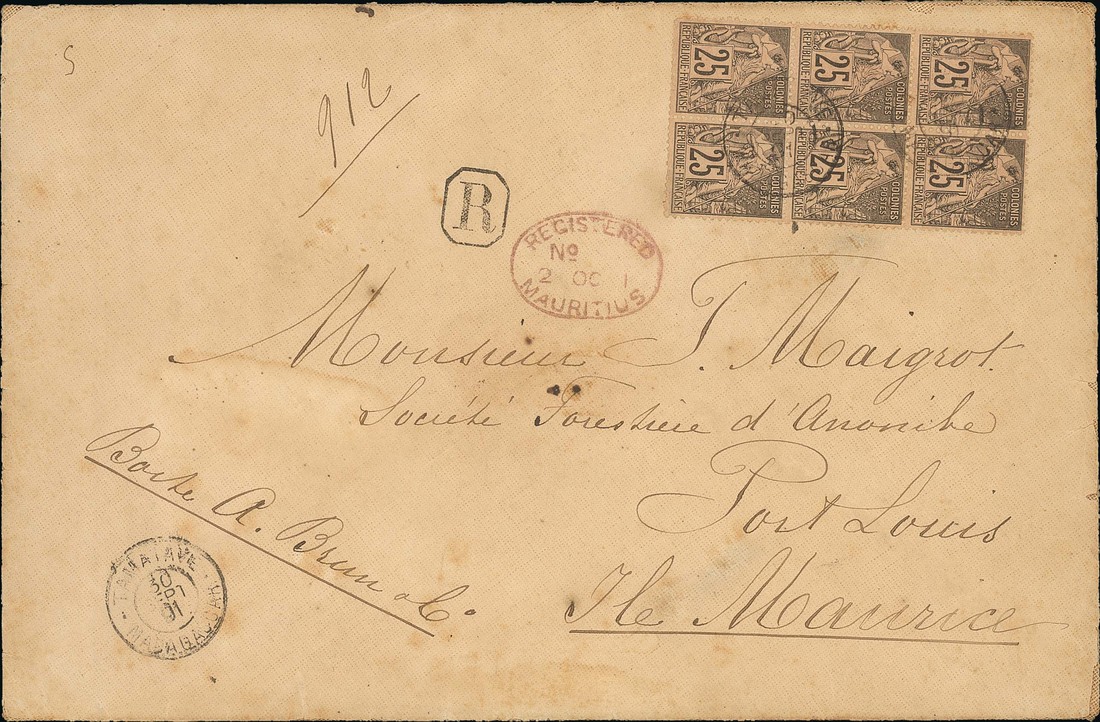 S
912
R
REGISTERED
No
2 OC 1
MAURITIUS
25 COLONIES POSTES REPUBLIQUE FRANÇAISE
25 COLONIES POSTES REPUBLIQUE FRANÇAISE
25 COLONIES POSTES REPUBLIQUE FRANÇAISE
25 COLONIES POSTES REPUBLIQUE FRANÇAISE
25 COLONIES POSTES REPUBLIQUE FRANÇAISE
25 COLONIES POSTES REPUBLIQUE FRANÇAISE
Monsieur J. Maigrot.
Société Forestière d'Anonibe
Port Louis
Ile Maurice
Boite A. Brun & Co
TAMATAVE
30
91
MADAGASCAR